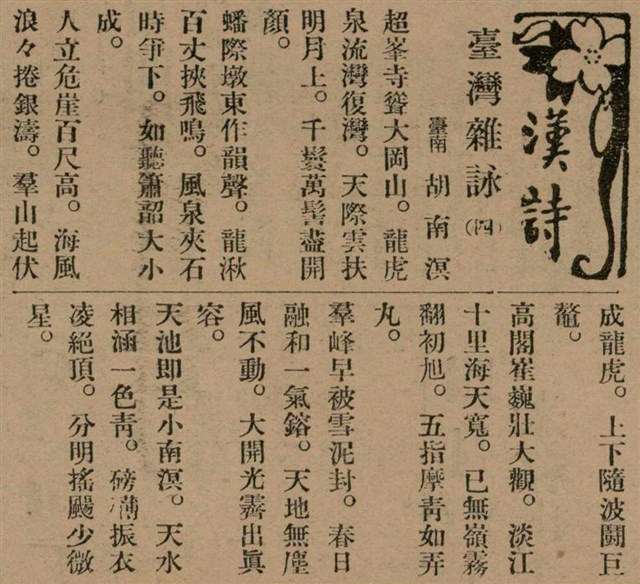 漢詩
臺灣雜詠(四)
臺南 胡南溟
超峯寺聳大岡山。龍虎
泉流灣復灣。天際雲扶
明月上。千鬟萬髻盡開
顏。
蟠際墩東作韻聲。龍湫
百丈挾飛鳴。風泉夾石
時爭下。如聽簫韶大小
成。
人立危崖百尺高。海風
浪々捲銀濤。羣山起伏
成龍虎。上下隨波鬪巨
鼇。
高閣崔巍壯大觀。淡江
十里海天寬。已無嶺霧
翻初旭。五指摩青如弄
丸。
羣峰早被雪泥封。春日
融和一氣鎔。天地無塵
風不動。大開光霽出眞
容。
天池即是小南溟。天水
相涵一色青。磅礴振衣
凌絕頂。分明搖颺少微
星。